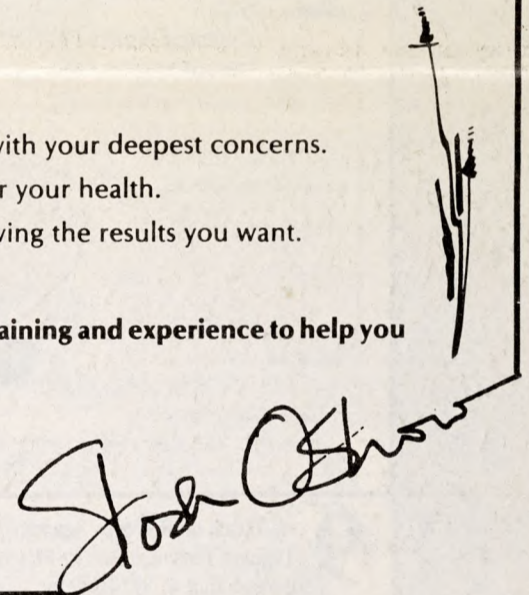 vith your deepest concerns.
r your health.
ving the results you want.
aining and experience to help you